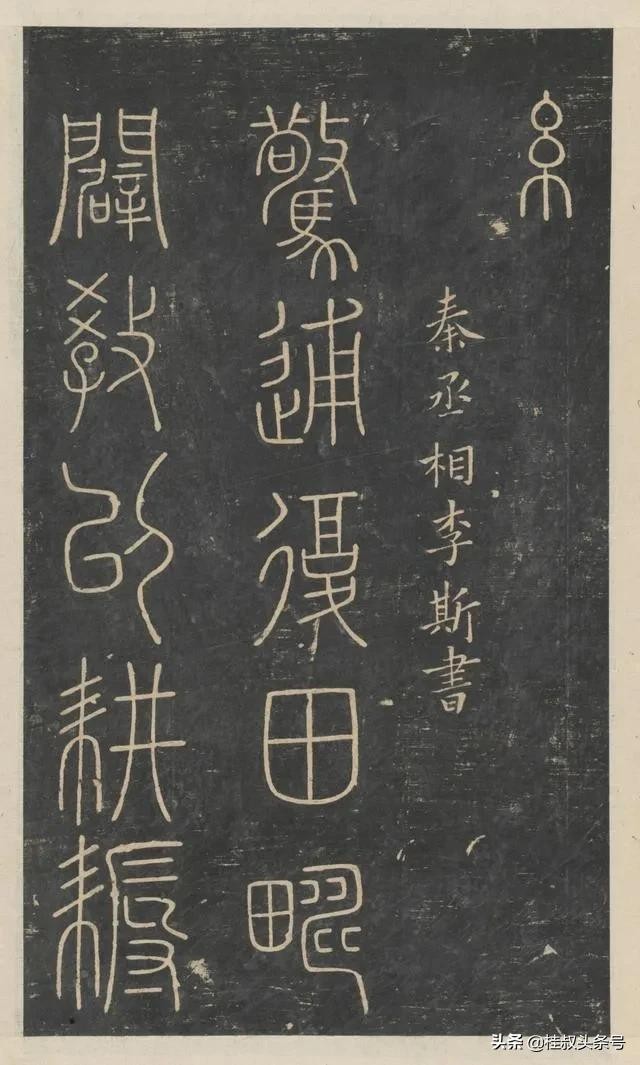 糸
秦丞相李斯書
驚逋復田疇
闢教以耕耨
头条 @桂叔头条号